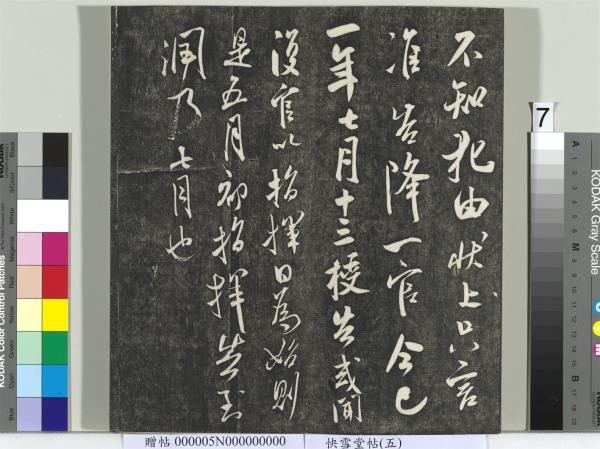 不知犯由状上只言
准告降一官今已
一年七月十三授告或闻
復官以指揮日為始則
是五月初指揮告到
潤乃七月也
7
贈帖 000005N000000000 快雪堂帖(五)
KODAK Color Control Patches
Blue Cyan Green Yellow Red Magenta White 3/Color Black
KODAK Gray Scale
A 1 2 3 4 5 6 M 8 9 10 11 12 13 14 15 B 17 18 19
C Y M